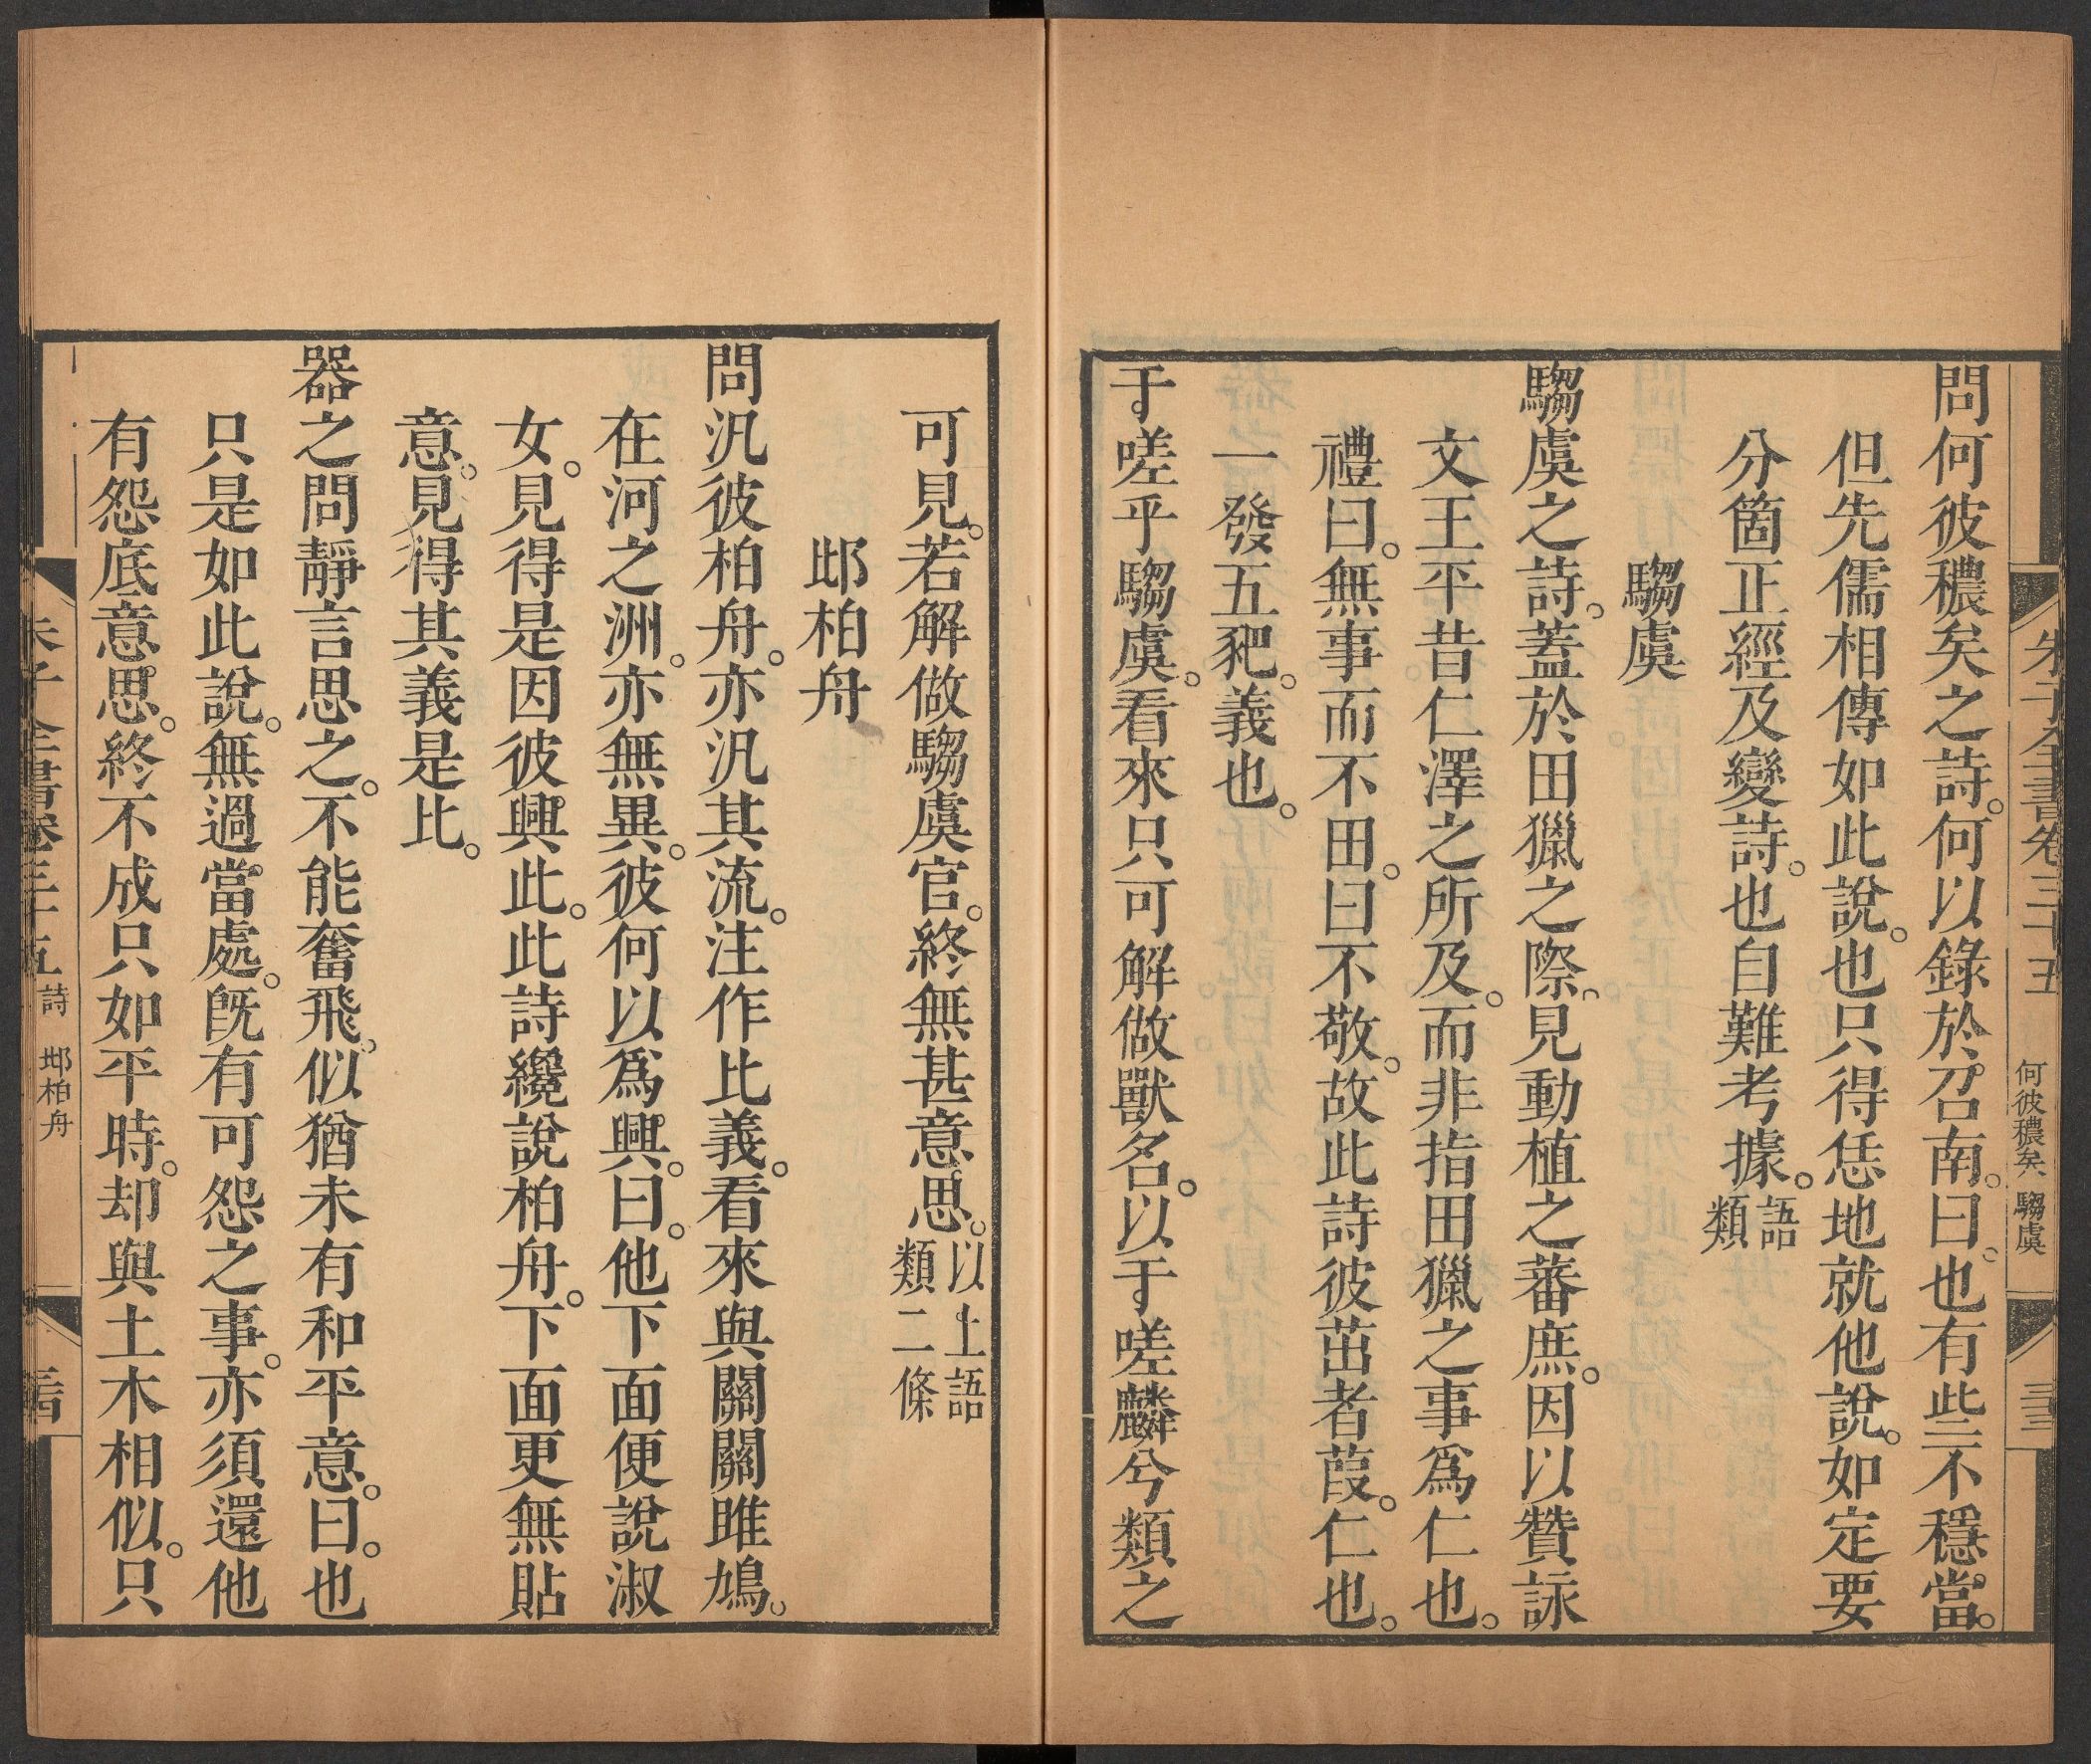 朱子全書卷三十五
何彼穠矣 騶虞
三三
問何彼穠矣之詩。何以錄於召南。曰。也有些不穩當。
但先儒相傳如此說。也只得恁地就他說。如定要
分箇正經及變詩。也自難考據。語類
騶虞
騶虞之詩。蓋於田獵之際。見動植之蕃庶。因以贊詠
文王平昔仁澤之所及。而非指田獵之事爲仁也。
禮曰。無事而不田。曰不敬。故此詩彼茁者葭。仁也。
一發五豝。義也。
于嗟乎騶虞。看來只可解做獸名。以于嗟麟兮類之
可見。若解做騶虞官。終無甚意思。以上語類二條
邶柏舟
問汎彼柏舟。亦汎其流。注作比義。看來與關關雎鳩。
在河之洲。亦無異。彼何以爲興。曰。他下面便說淑
女。見得是因彼興此。此詩纔說柏舟。下面更無貼
意。見得其義是比。
器之問靜言思之。不能奮飛。似猶未有和平意。曰。也
只是如此說。無過當處。旣有可怨之事。亦須還他
有怨底意思。終不成只如平時。却與土木相似。只
朱子全書卷三十五 詩 邶柏舟
三四